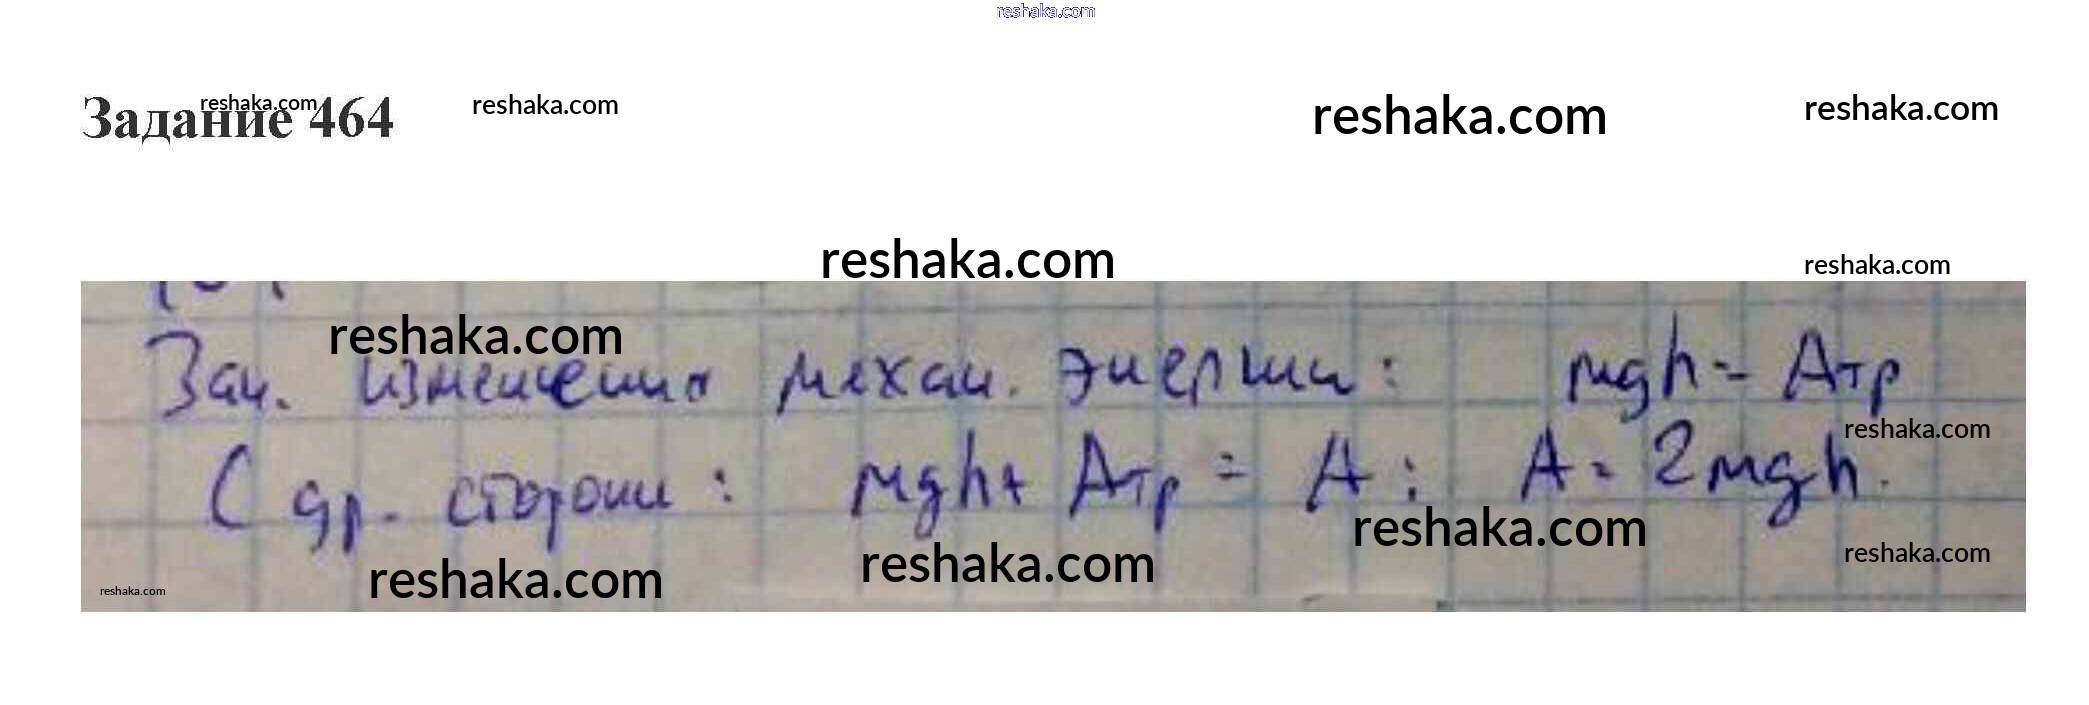 reshaka.com
Задание 464
reshaka.com
reshaka.com
reshaka.com
reshaka.com
reshaka.com
reshaka.com
reshaka.com
Зак. изменения механ. энергии: mgh = Aтр
reshaka.com
С др. стороны: mgh + Aтр = A; A = 2mgh.
reshaka.com
reshaka.com
reshaka.com
reshaka.com
reshaka.com